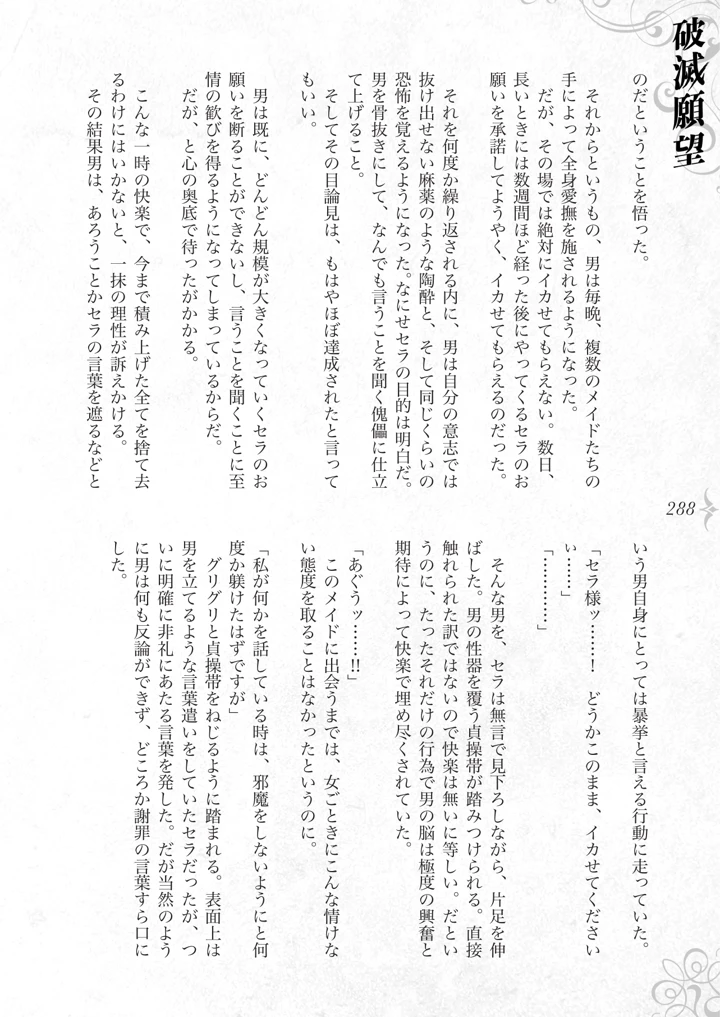 破滅願望
のだということを悟った。
それからというもの、男は毎晩、複数のメイドたちの
手によって全身愛撫を施されるようになった。
だが、その場では絶対にイカせてもらえない。数日、
長いときには数週間ほど経った後にやってくるセラのお
願いを承諾してようやく、イカせてもらえるのだった。
それを何度か繰り返される内に、男は自分の意志では
抜け出せない麻薬のような陶酔と、そして同じくらいの
恐怖を覚えるようになった。なにせセラの目的は明白だ。
男を骨抜きにして、なんでも言うことを聞く傀儡に仕立
て上げること。
そしてその目論見は、もはやほぼ達成されたと言って
もいい。
男は既に、どんどん規模が大きくなっていくセラのお
願いを断ることができないし、言うことを聞くことに至
情の歓びを得るようになってしまっているからだ。
だが、と心の奥底で待ったがかかる。
こんな一時の快楽で、今まで積み上げた全てを捨て去
るわけにはいかないと、一抹の理性が訴えかける。
その結果男は、あろうことかセラの言葉を遮るなどと
いう男自身にとっては暴挙と言える行動に走っていた。
「セラ様ッ……！　どうかこのまま、イカせてくださ
い……」
「…………」
そんな男を、セラは無言で見下ろしながら、片足を伸
ばした。男の性器を覆う貞操帯が踏みつけられる。直接
触れられた訳ではないので快楽は無いに等しい。だとい
うのに、たったそれだけの行為で男の脳は極度の興奮と
期待によって快楽で埋め尽くされていた。
「あぐうッ……!!」
このメイドに出会うまでは、女ごときにこんな情けな
い態度を取ることはなかったというのに。
「私が何かを話している時は、邪魔をしないようにと何
度か躾けたはずですが」
グリグリと貞操帯をねじるように踏まれる。表面上は
男を立てるような言葉遣いをしていたセラだったが、つ
いに明確に非礼にあたる言葉を発した。だが当然のよう
に男は何も反論ができず、どころか謝罪の言葉すら口に
した。
288